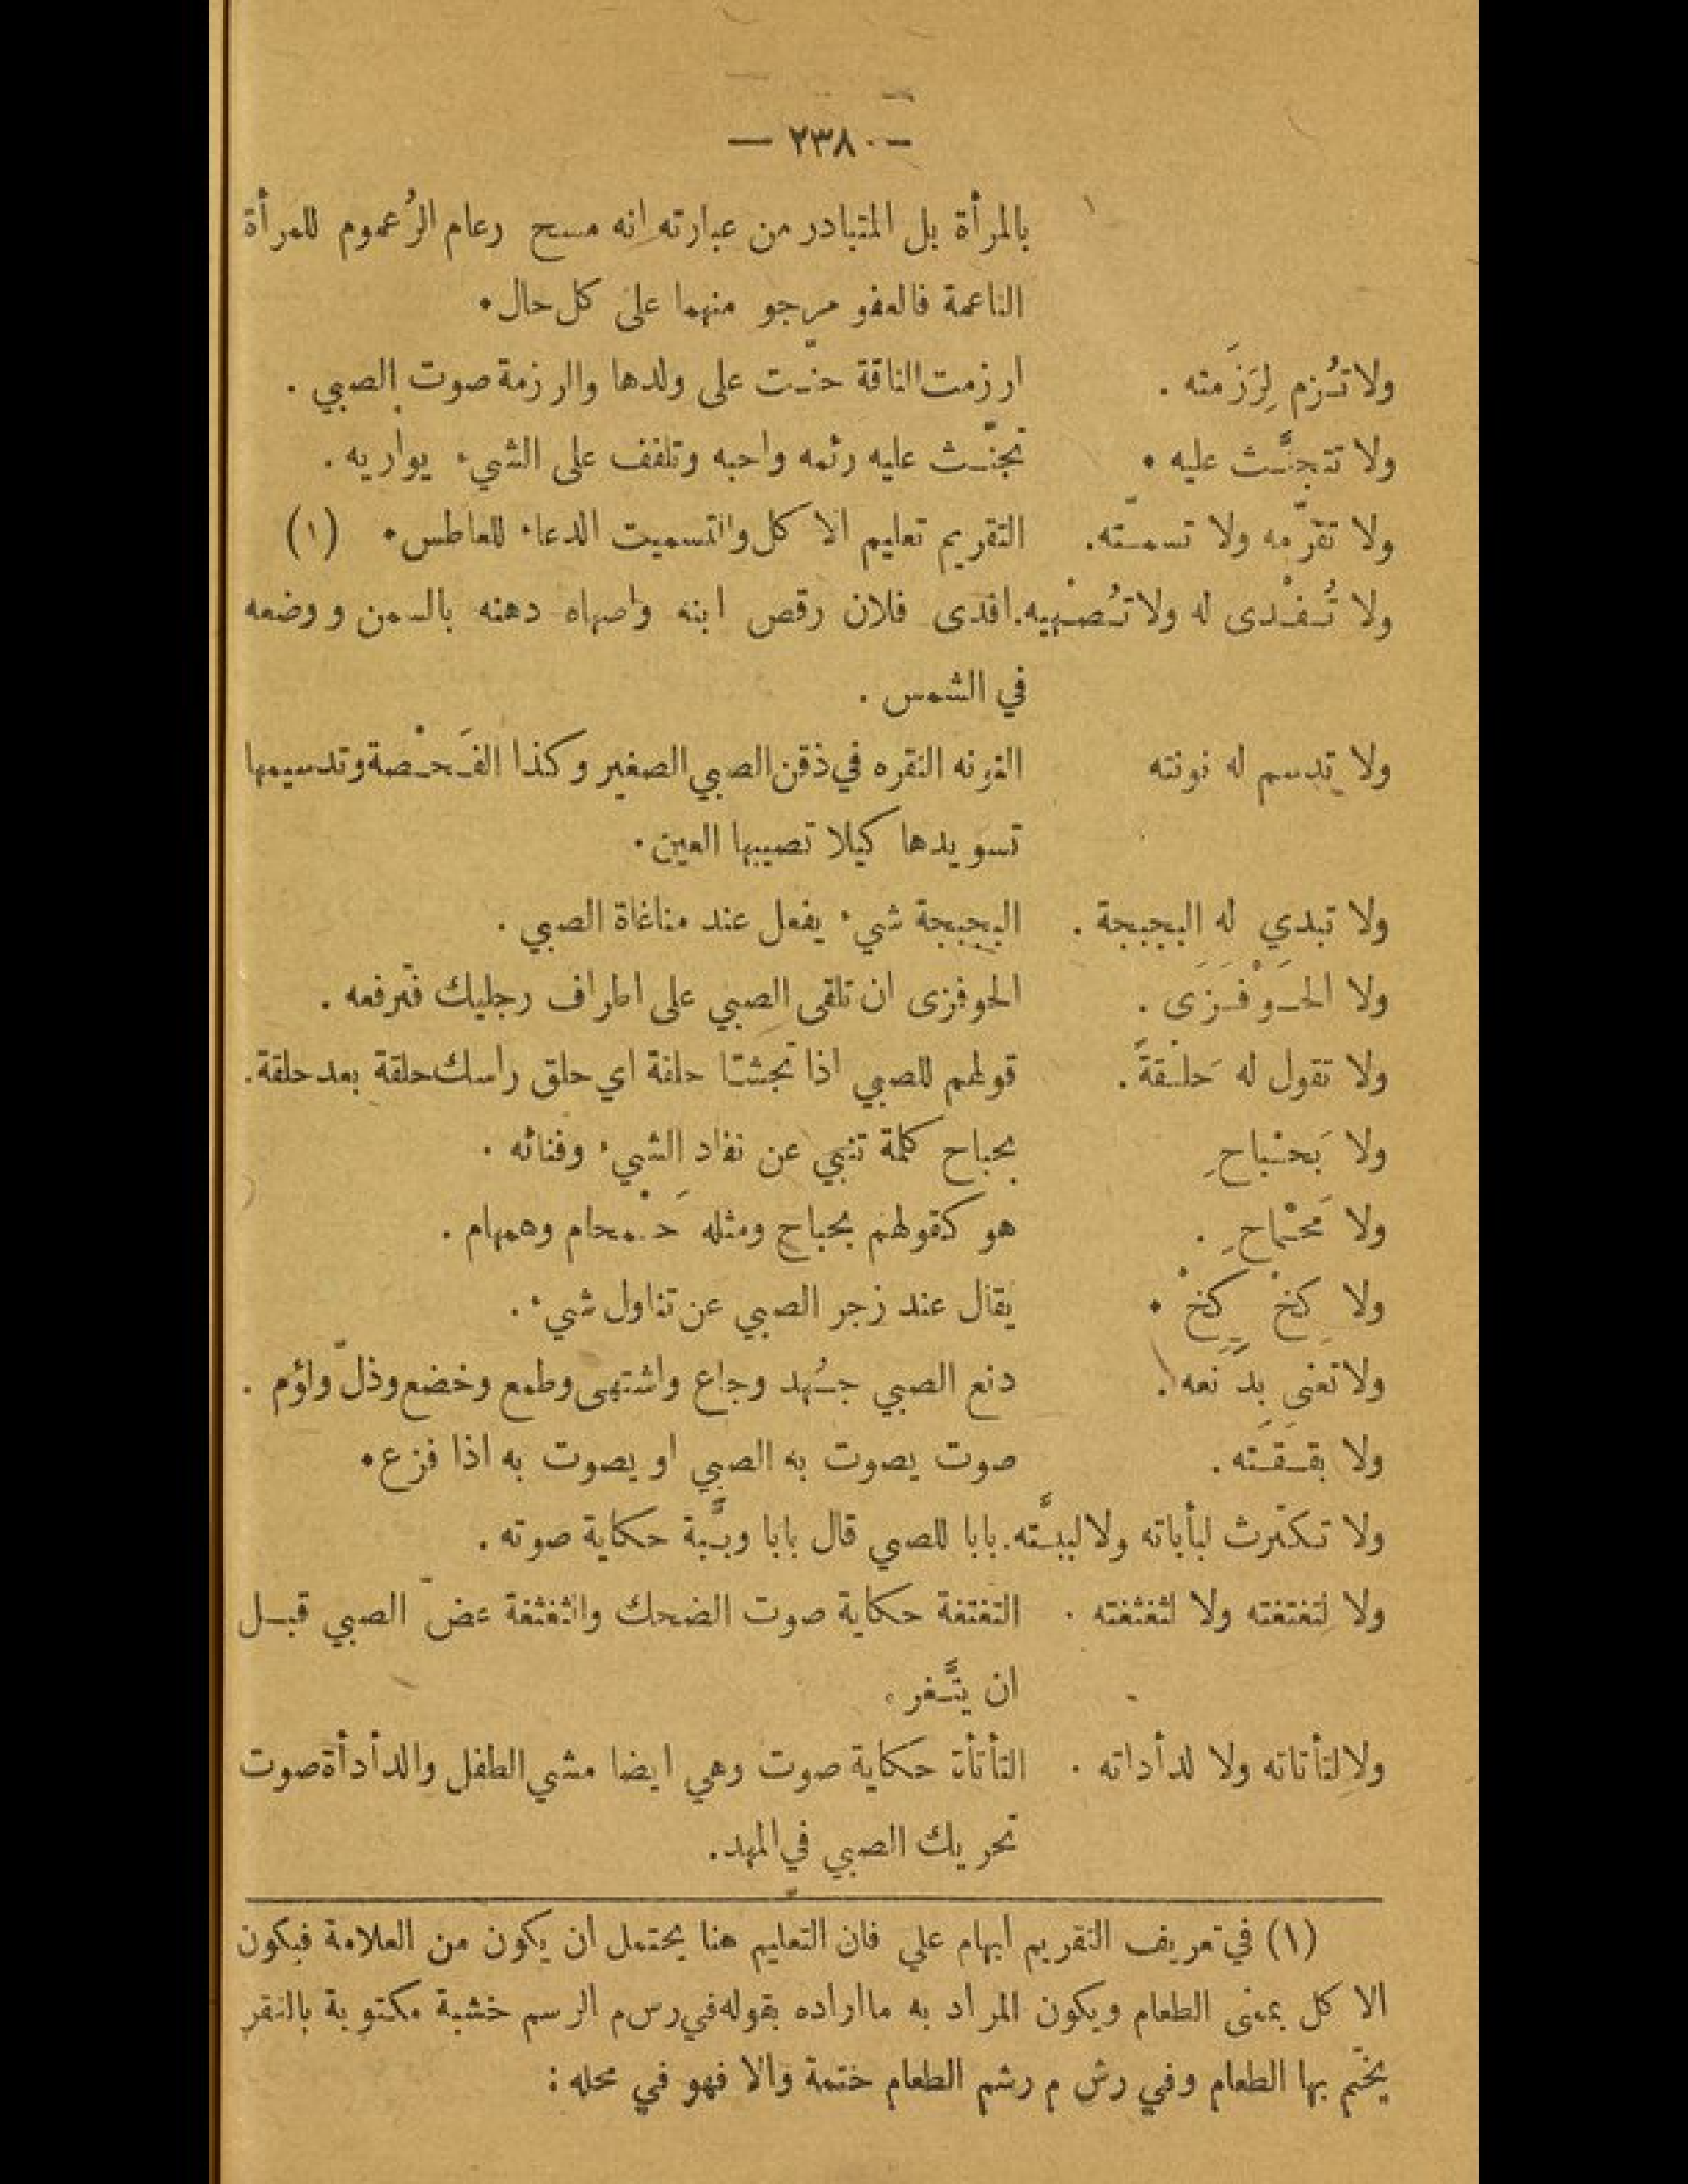 — ٢٣٨ —
بالمرأة بل المتبادر من عبارته انه مسح رعام الرُعموم للمرأة
الناعمة فالعفو مرجو منهما على كل حال.
ولا تُرزم لِرَزَمته . ارزمت الناقة حنّت على ولدها والرزمة صوت الصبي .
ولا تتجنَّث عليه . تجنّث عليه رئمه واحبه وتلفف على الشيء يواريه .
ولا تقرّمه ولا تسمّته. التقريم تعليم الاكل والتسميت الدعاء للعاطس. (١)
ولا تُفْدى له ولا تُصْهيه. افدى فلان رقص ابنه واصهاه دهنه بالسمن ووضعه
في الشمس .
ولا تدسم له نونته النونه النقره في ذقن الصبي الصغير وكذا الفَحْصة وتدسيمها
تسويدها كيلا تصيبها العين.
ولا تبدي له البجبجة . البجبجة شيء يفعل عند مناغاة الصبي .
ولا الحَوْفَزَى . الحوفزى ان تلقى الصبي على اطراف رجليك فترفعه .
ولا تقول له حَلْقةً. قولهم للصبي اذا تجشّا حلقة اي حلق راسك حلقة بعد حلقة.
ولا بَحْباحِ بحباح كلمة تنبي عن نفاد الشيء وفنائه .
ولا مَحْماحِ . هو كقولهم بحباح ومثله حَمْحام وهمهام .
ولا كِخْ كِخْ . يقال عند زجر الصبي عن تناول شيء .
ولا تعنى بدَنَعه . دنع الصبي جُهد وجاع واشتهى وطمع وخضع وذلّ ولؤم .
ولا بقَقَته . صوت يصوت به الصبي او يصوت به اذا فزع.
ولا تكترث لبأباته ولا لببَّته. بابا للصبي قال بابا وببَّة حكاية صوته .
ولا لتغتغته ولا لثغثغته . التغتغة حكاية صوت الضحك والثغثغة عضّ الصبي قبل
ان يثَّغر .
ولا لتأتاته ولا لدأداته . التأتأة حكاية صوت وهي ايضا مشي الطفل والدأدأة صوت
تحريك الصبي في المهد.
(١) في تعريف التقريم ابهام علي فان التعليم هنا يحتمل ان يكون من العلامة فيكون
الاكل بمعنى الطعام ويكون المراد به ما اراده بقوله في رس م الرسم خشبة مكتوبة بالنقر
يختم بها الطعام وفي رش م رشم الطعام ختمة والا فهو في محله :